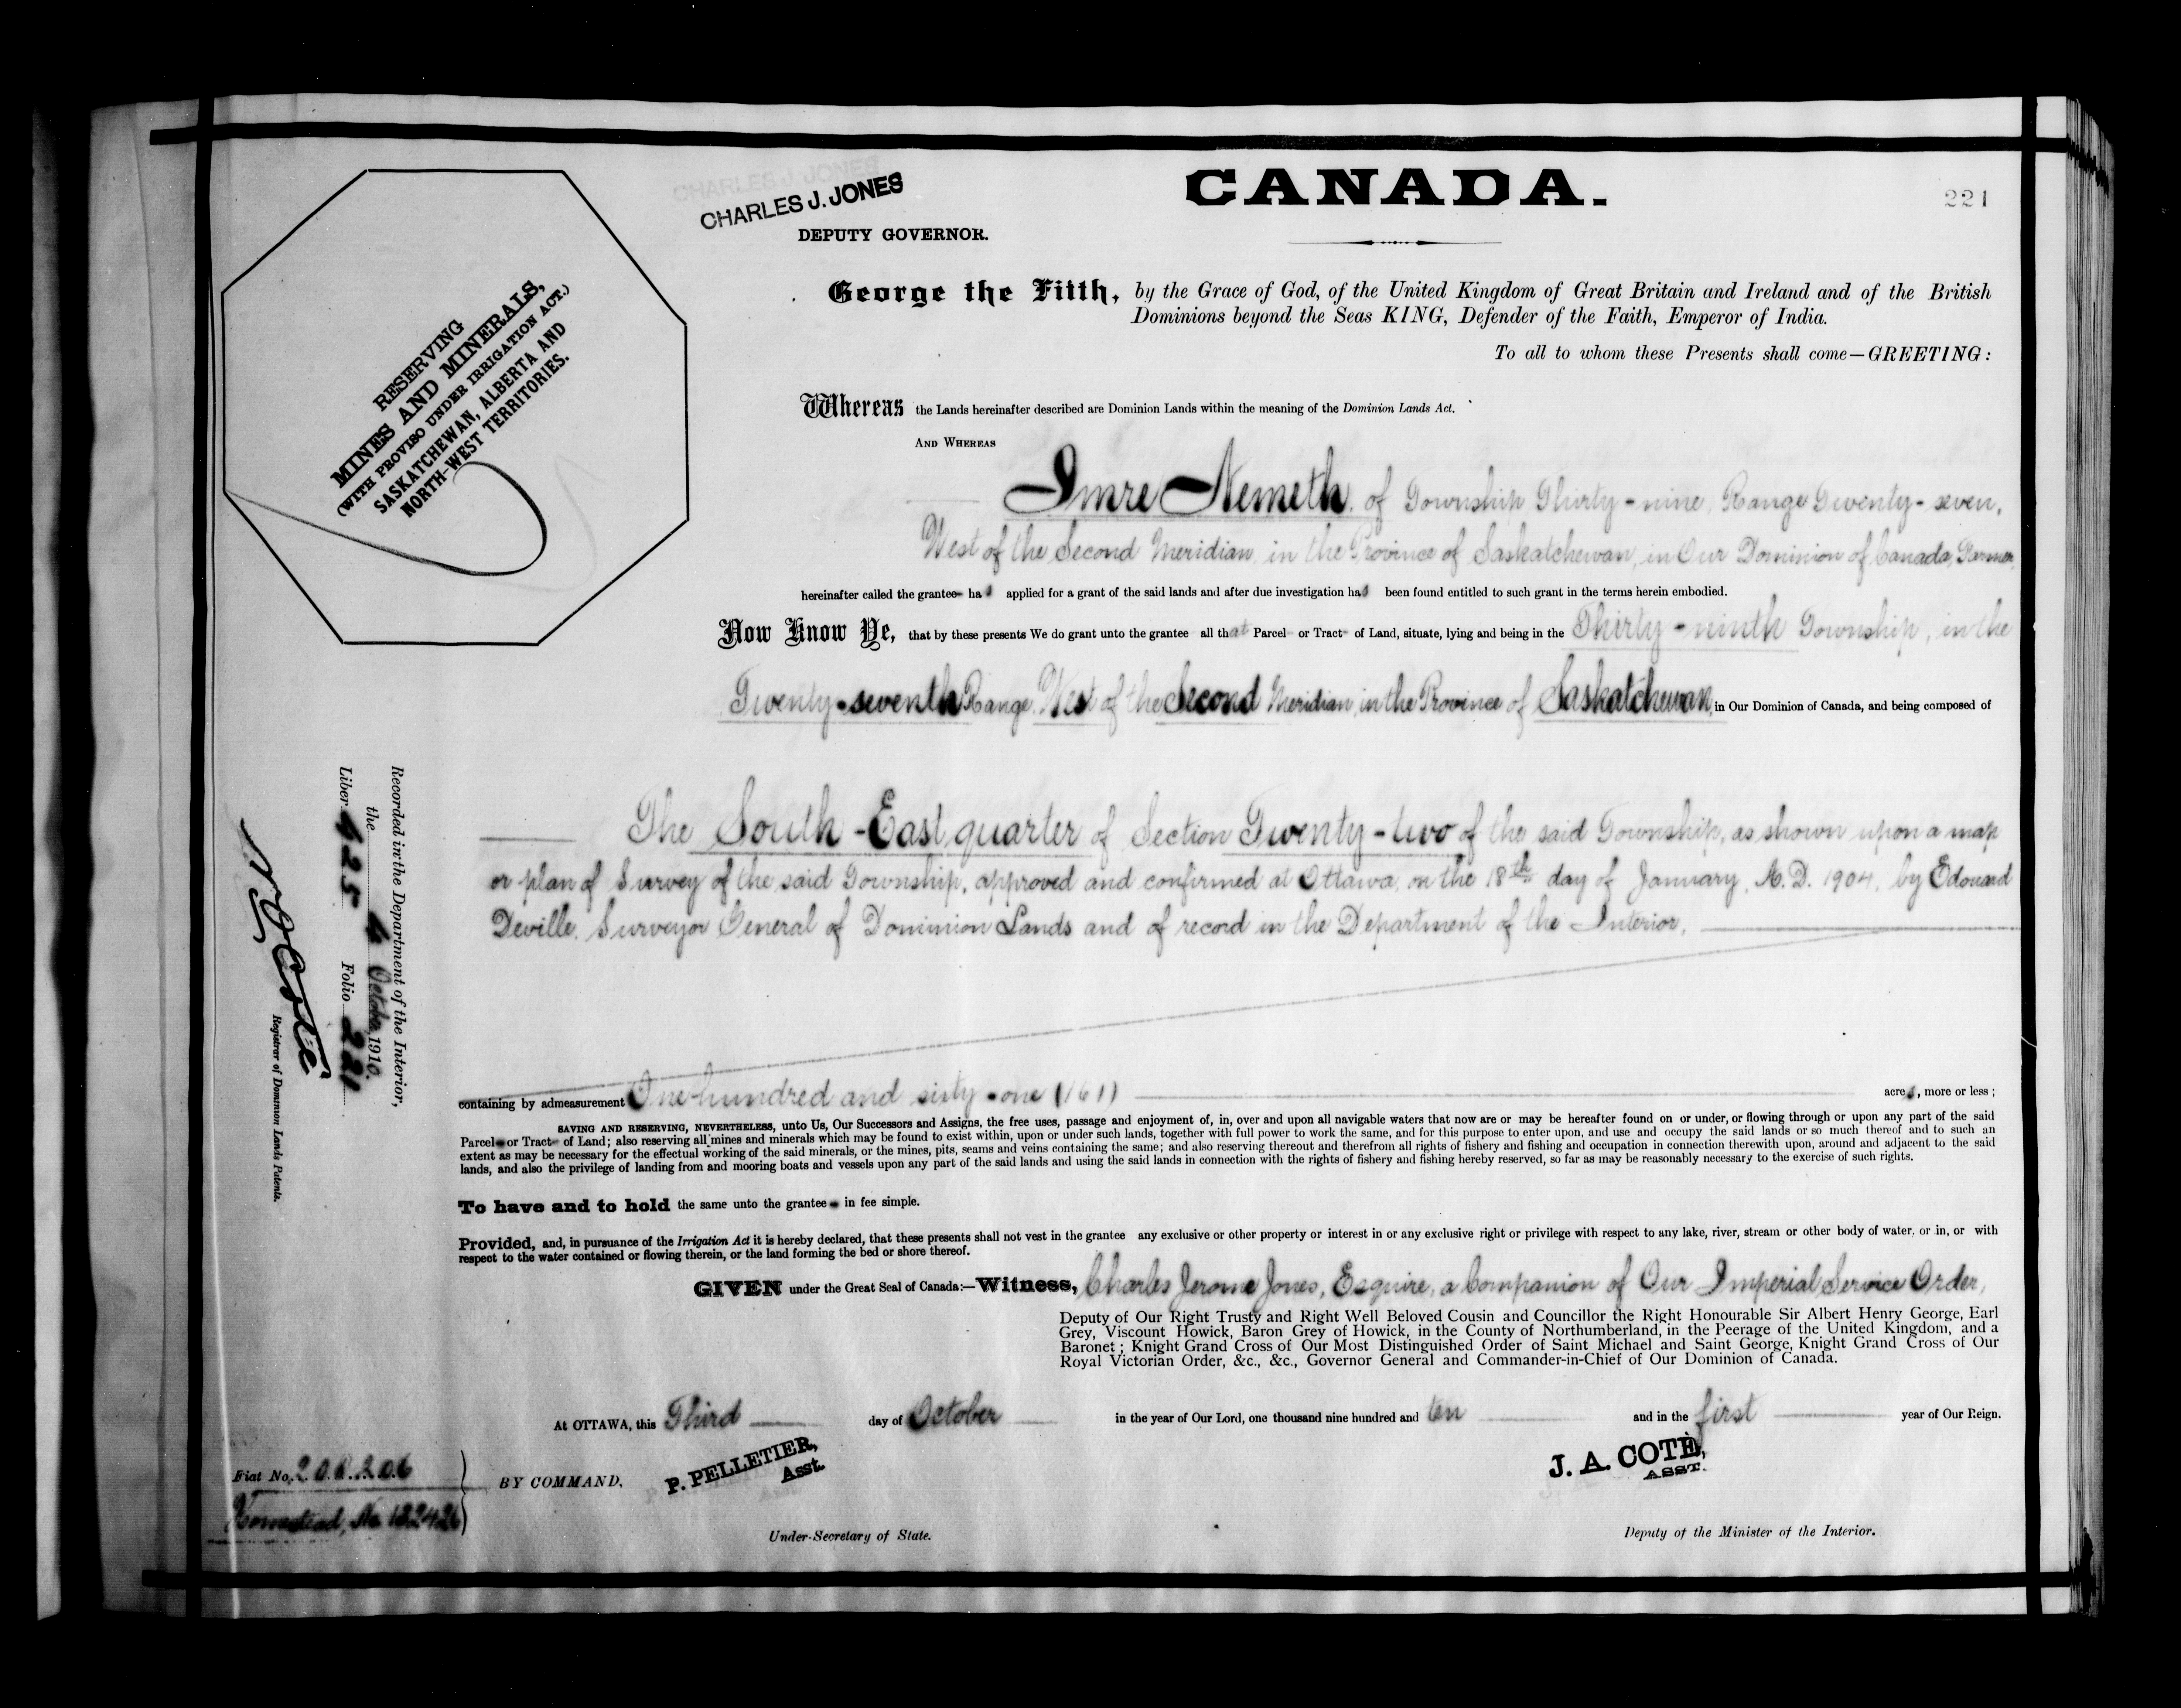 CHARLES J. JONES
CHARLES J. JONES
DEPUTY GOVERNOR.
CANADA.
221
RESERVING
MINES AND MINERALS,
(WITH PROVISO UNDER IRRIGATION ACT.)
SASKATCHEWAN, ALBERTA AND
NORTH-WEST TERRITORIES.
George the Fifth, by the Grace of God, of the United Kingdom of Great Britain and Ireland and of the British
Dominions beyond the Seas KING, Defender of the Faith, Emperor of India.
To all to whom these Presents shall come—GREETING:
Whereas the Lands hereinafter described are Dominion Lands within the meaning of the Dominion Lands Act.
AND WHEREAS
Imre Nemeth, of Township Thirty-nine, Range Twenty-seven,
West of the Second Meridian, in the Province of Saskatchewan, in Our Dominion of Canada, Farmer,
hereinafter called the grantee has applied for a grant of the said lands and after due investigation has been found entitled to such grant in the terms herein embodied.
Now Know Ye, that by these presents We do grant unto the grantee all that Parcel or Tract of Land, situate, lying and being in the Thirty-ninth Township, in the
Twenty-seventh Range, West of the Second Meridian, in the Province of Saskatchewan, in Our Dominion of Canada, and being composed of
The South-East quarter of Section Twenty-two of the said Township, as shown upon a map
or plan of Survey of the said Township, approved and confirmed at Ottawa, on the 18th day of January, A.D. 1904, by Edouard
Deville, Surveyor General of Dominion Lands and of record in the Department of the Interior,
containing by admeasurement One hundred and sixty-one (161) acres, more or less;
SAVING AND RESERVING, NEVERTHELESS, unto Us, Our Successors and Assigns, the free uses, passage and enjoyment of, in, over and upon all navigable waters that now are or may be hereafter found on or under, or flowing through or upon any part of the said
Parcel or Tract of Land; also reserving all mines and minerals which may be found to exist within, upon or under such lands, together with full power to work the same, and for this purpose to enter upon, and use and occupy the said lands or so much thereof and to such an
extent as may be necessary for the effectual working of the said minerals, or the mines, pits, seams and veins containing the same; and also reserving thereout and therefrom all rights of fishery and fishing and occupation in connection therewith upon, around and adjacent to the said
lands, and also the privilege of landing from and mooring boats and vessels upon any part of the said lands and using the said lands in connection with the rights of fishery and fishing hereby reserved, so far as may be reasonably necessary to the exercise of such rights.
To have and to hold the same unto the grantee in fee simple.
Provided, and, in pursuance of the Irrigation Act it is hereby declared, that these presents shall not vest in the grantee any exclusive or other property or interest in or any exclusive right or privilege with respect to any lake, river, stream or other body of water, or in, or with
respect to the water contained or flowing therein, or the land forming the bed or shore thereof.
GIVEN under the Great Seal of Canada:—Witness, Charles Jerome Jones, Esquire, a Companion of Our Imperial Service Order,
Deputy of Our Right Trusty and Right Well Beloved Cousin and Councillor the Right Honourable Sir Albert Henry George, Earl
Grey, Viscount Howick, Baron Grey of Howick, in the County of Northumberland, in the Peerage of the United Kingdom, and a
Baronet; Knight Grand Cross of Our Most Distinguished Order of Saint Michael and Saint George, Knight Grand Cross of Our
Royal Victorian Order, &c., &c., Governor General and Commander-in-Chief of Our Dominion of Canada.
At OTTAWA, this Third day of October in the year of Our Lord, one thousand nine hundred and ten and in the first year of Our Reign.
BY COMMAND,
P. PELLETIER,
Asst.
Under-Secretary of State.
J. A. COTÈ,
ASST.
Deputy of the Minister of the Interior.
Recorded in the Department of the Interior,
the 4 October 1910.
Liber 625 Folio 221
Registrar of Dominion Lands Patents.
Fiat No.
Homestead, No